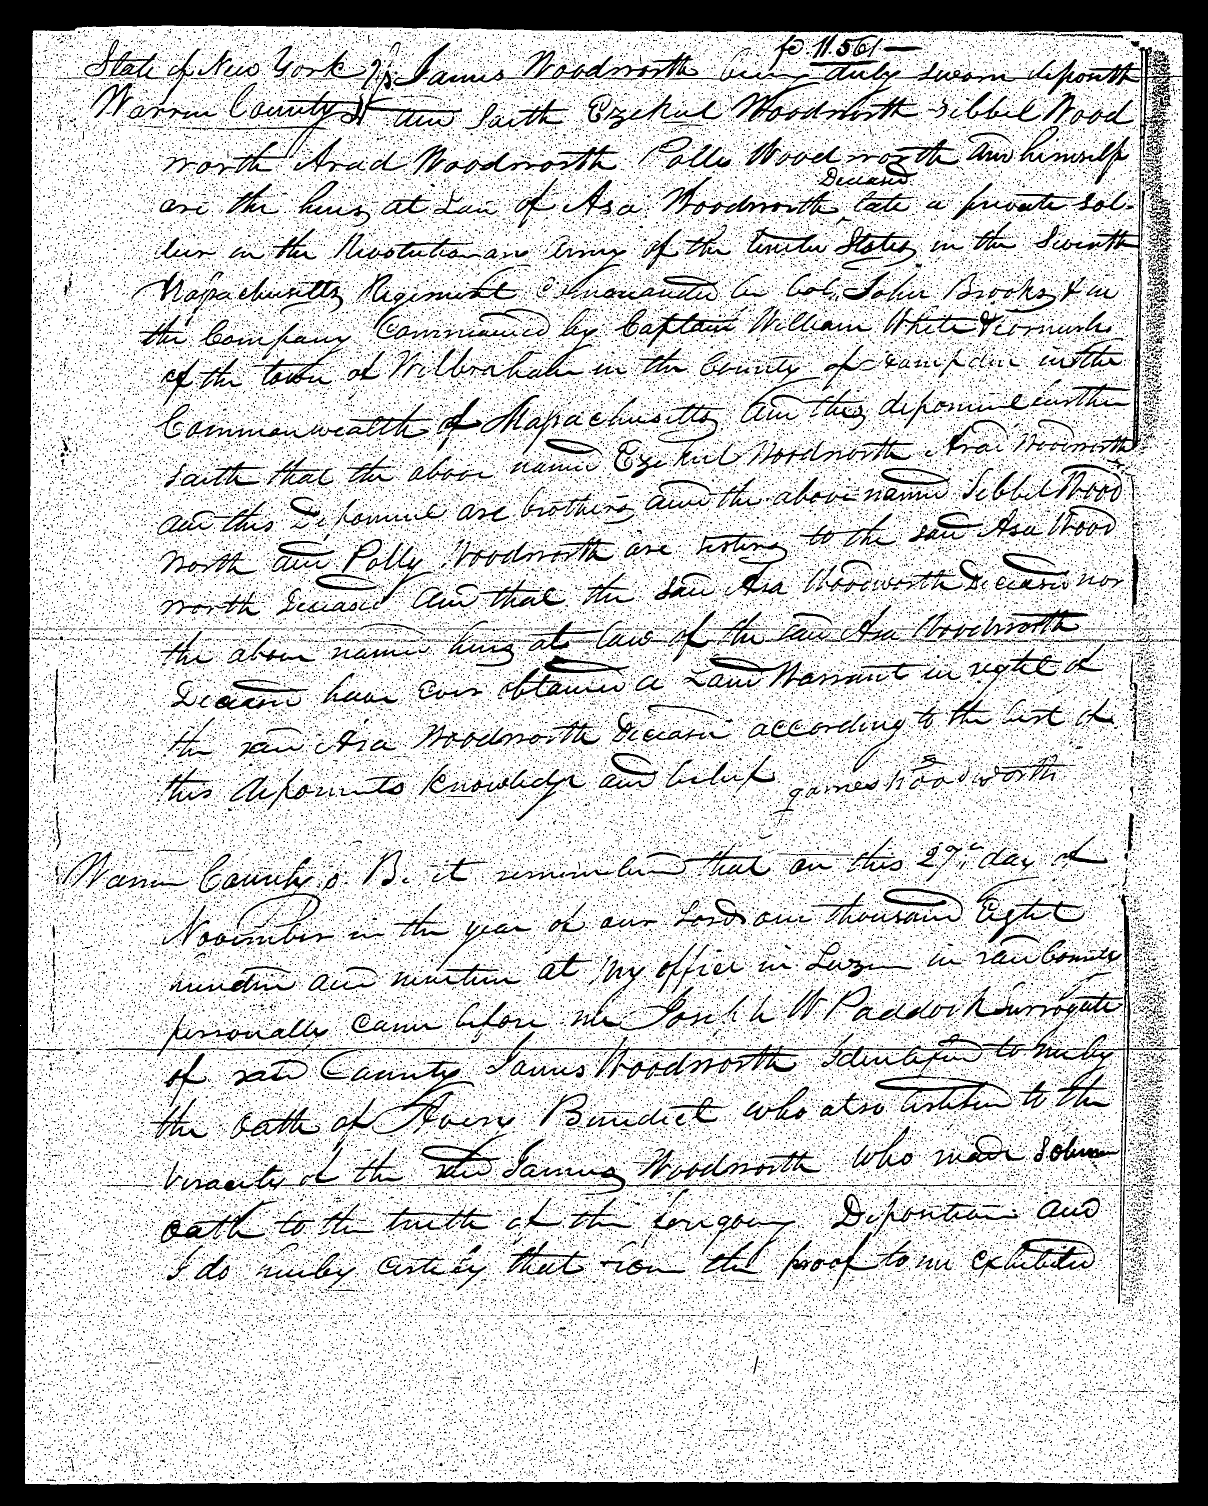 fo 11.561 —
State of New York } ss James Woodworth being duly sworn deposeth
Warren County and saith Ezekiel Woodworth Sibbel Wood
worth Arad Woodworth Polly Woodworth and himself
Deceased
are the heirs at Law of Asa Woodworth late a private sol-
dier in the Revolutionary army of the United States in the Seventh
Massachusetts Regiment Commanded by Col. John Brooks & in
the Company Commanded by Captain William White
of the town of Wilbraham in the County of Hampden in the
Commonwealth of Massachusetts and this deponent further
saith that the above named Ezekiel Woodworth Arad Woodworth
and this Deponent are brothers and the above named Sibbel Wood
worth and Polly Woodworth are sisters to the said Asa Wood
worth Deceased and that the said Asa Woodworth Deceased nor
the above named heirs at law of the said Asa Woodworth
Deceased have ever obtained a Land Warrant in right of
the said Asa Woodworth Deceased according to the best of
this deponents knowledge and belief James Woodworth
Warren County s. Be it remembered that on this 27th day of
November in the year of our Lord one thousand Eight
hundred and nineteen at my office in Luzern in said County
personally came before me Joseph W Paddock Surrogate
of said County James Woodworth Identified to me by
the oath of Avery Benedict who also testified to the
veracity of the said James Woodworth who made solemn
oath to the truth of the foregoing Deposition and
I do hereby certify that from the proof to me exhibited